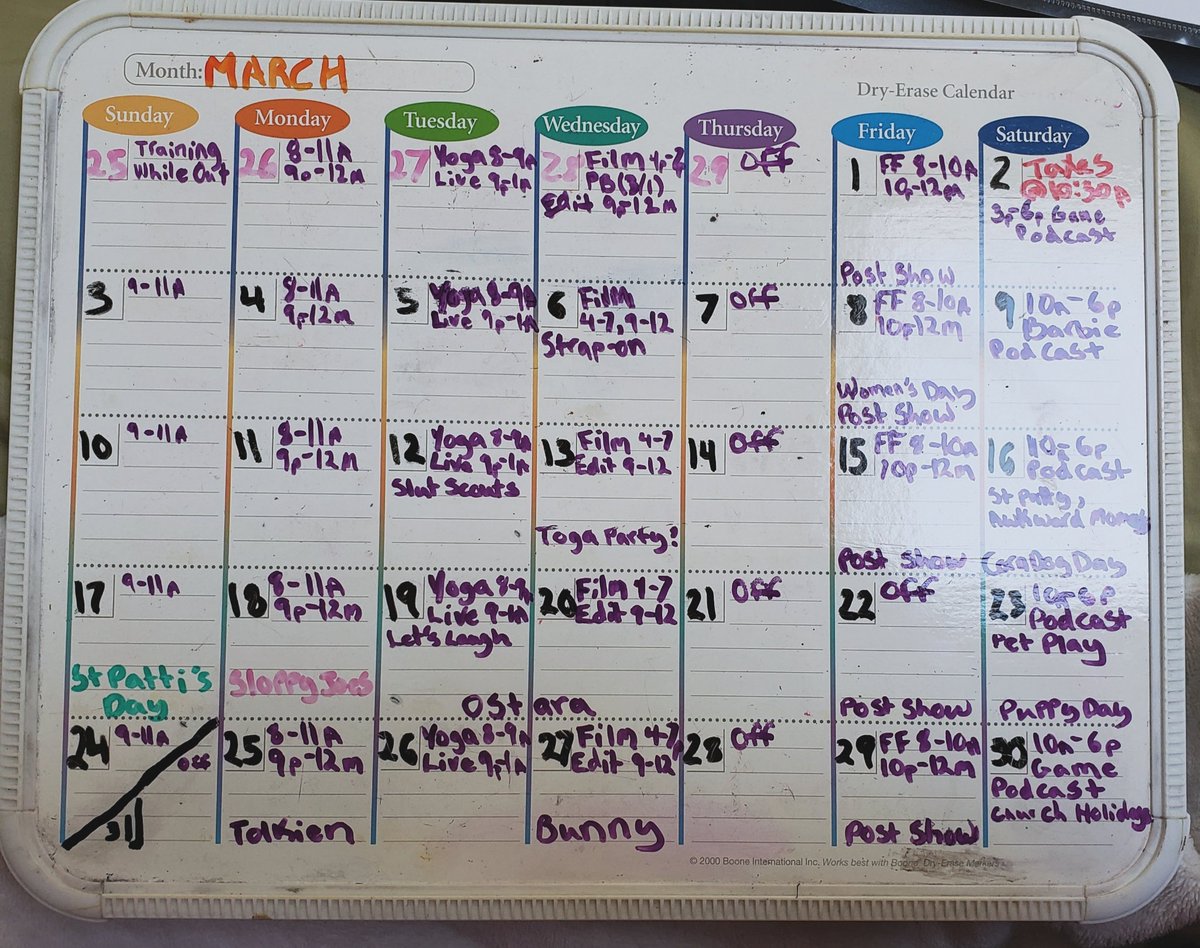 Month: MARCH
Dry-Erase Calendar
Sunday Monday Tuesday Wednesday Thursday Friday Saturday
25 Training
While Out
26 8-11A
9p-12m
27 Yoga 8-9A
Live 9p-1A
28 Film 4-7
PB (3/1)
Edit 9p-12m
29 Off
1 FF 8-10A
10p-12m
Post Show
2
@10:30p
3p-6p Game
Podcast
3 9-11A
4 8-11A
9p-12m
5 Yoga 8-9A
Live 9p-1A
6 Film
4-7, 9-12
Strap-on
7 Off
8 FF 8-10A
10p-12m
Women's Day
Post Show
9 10a-6p
Barbie
Podcast
10 9-11A
11 8-11A
9p-12m
12 Yoga 8-9A
Live 9p-1A
Slut Scouts
13 Film 4-7
Edit 9-12
Toga Party!
14 Off
15 FF 8-10A
10p-12m
Post Show
16 10-6p
Podcast
St Patty,
Awkward Moments
Day
17 9-11A
St Patti's
Day
18 8-11A
9p-12m
Sloppy Joes
19 Yoga 8-9A
Live 9-1A
Let's Laugh
20 Film 4-7
Edit 9-12
Ostara
21 Off
22 Off
Post Show
23
Podcast
Pet Play
Puppy Day
24 9-11A
Off
31
25 8-11A
9p-12m
Tolkien
26 Yoga 8-9A
Live 9p-1A
27 Film 4-7,
Edit 9-12
Bunny
28 Off
29 FF 8-10A
10p-12m
Post Show
30 10a-6p
Game
Podcast
Church Holidays
© 2000 Boone International Inc. Works best with Boone Dry-Erase Markers